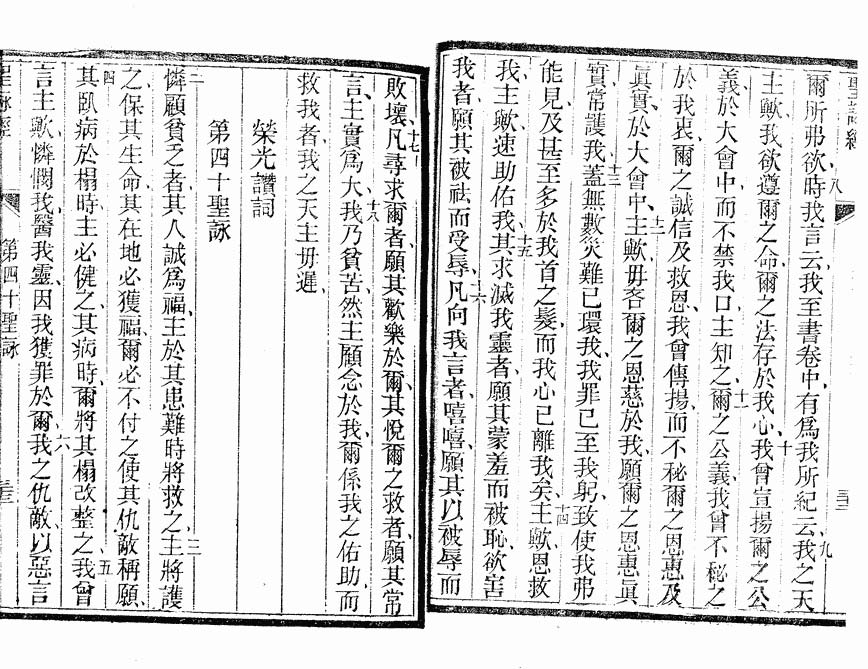 聖詠經 三十二
爾所弗欲時我言云我至書卷中有爲我所紀云我之天
八 九
主歟我欲遵爾之命爾之法存於我心我曾宣揚爾之公
十
義於大會中而不禁我口主知之爾之公義我曾不秘之
十一
於我衷爾之誠信及救恩我曾傳揚而不秘爾之恩惠及
眞實於大會中主歟毋吝爾之恩慈於我願爾之恩惠眞
十二
實常護我蓋無數災難已環我我罪已至我躬致使我弗
十三
能見及甚至多於我首之髮而我心已離我矣主歟恩救
十四
我主歟速助佑我其求滅我靈者願其蒙羞而被恥欲害
十五
我者願其被祛而受辱凡向我言者嘻嘻願其以被辱而
十六
敗壞凡尋求爾者願其歡樂於爾其悅爾之救者願其常
十七
言主實爲大我乃貧苦然主願念於我爾係我之佑助而
十八
救我者我之天主毋遲
榮光讚詞
第四十聖詠
憐顧貧乏者其人誠爲福主於其患難時將救之主將護
二 三
之保其生命其在地必獲福爾必不付之使其仇敵稱願
其臥病於榻時主必健之其病時爾將其榻改整之我曾
四 五
言主歟憐憫我醫我靈因我獲罪於爾我之仇敵以惡言
六
聖詠經 第四十聖詠 三十三